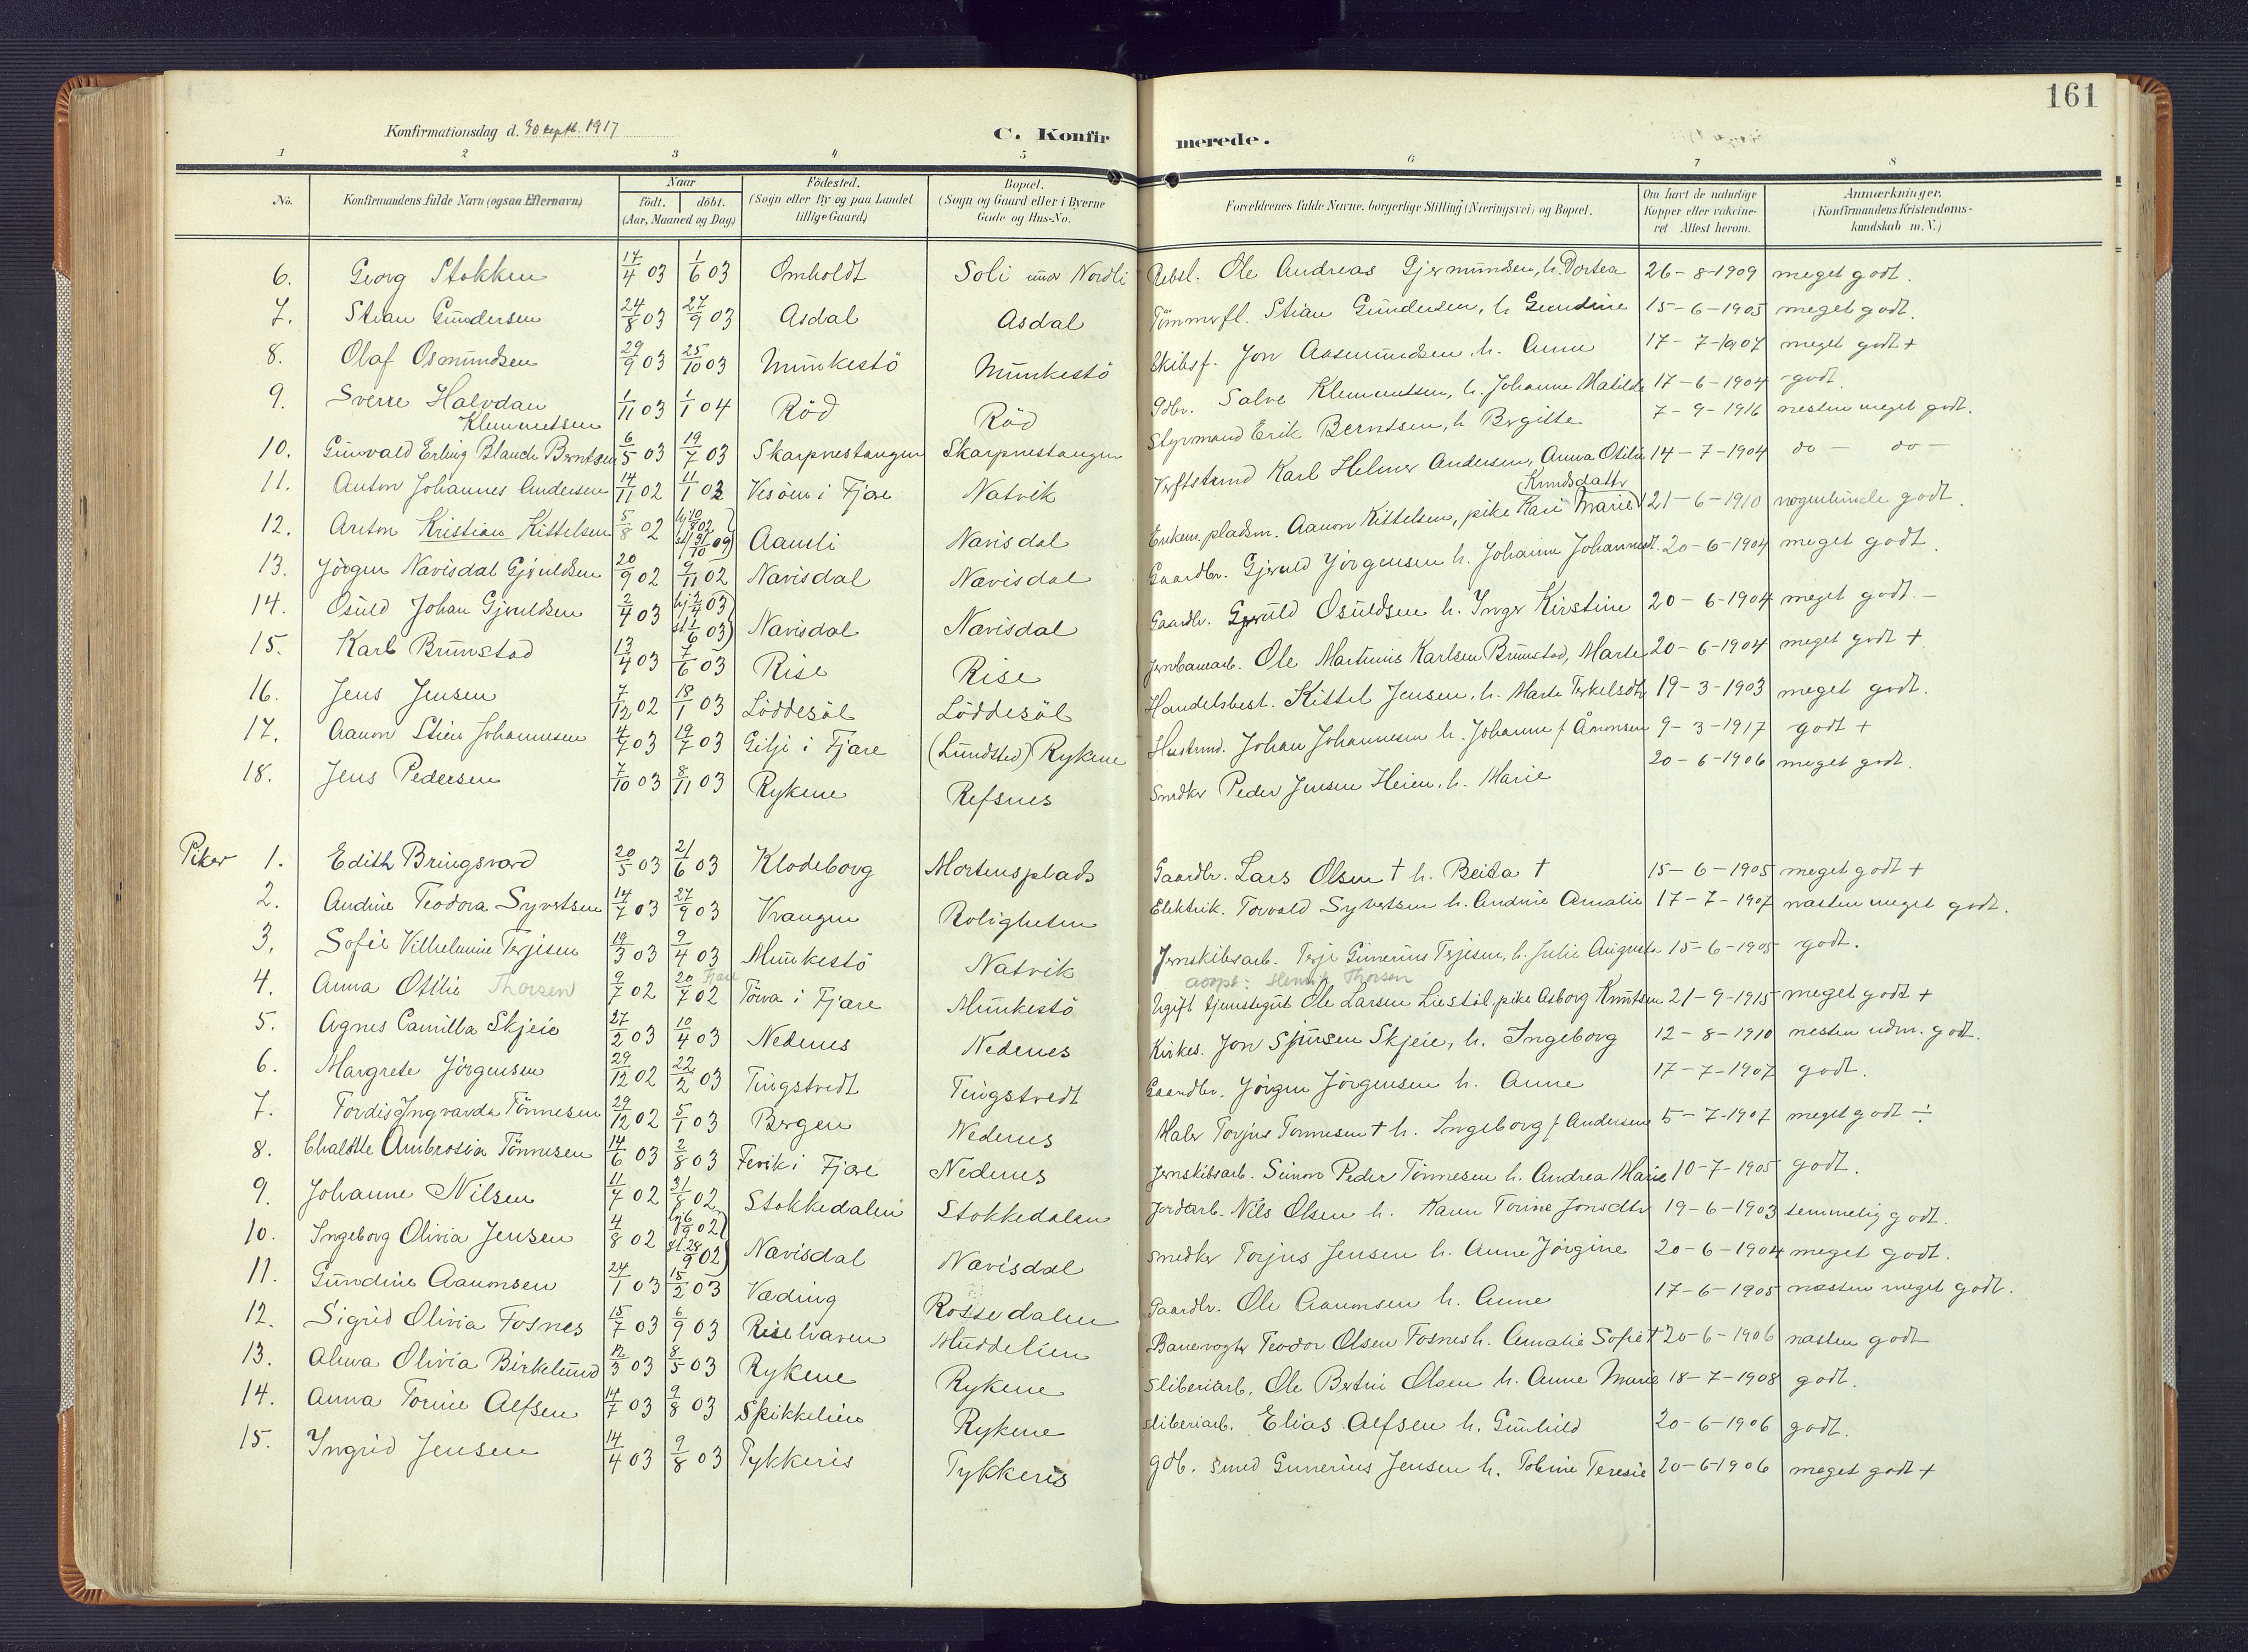 161
Konfirmationsdag d. 30 septb. 1917
C. Konfirmerede.
1 2 3 4 5 6 7 8
No. Konfirmandens fulde Navn (ogsaa Efternavn) Naar födt. döbt. (Aar, Maaned og Dag) Födested. (Sogn eller By og paa Landet tillige Gaard) Bopæl. (Sogn og Gaard eller i Byerne Gade og Hus-No. Forældrenes fulde Navne, borgerlige Stilling (Næringsvei) og Bopæl. Om havt de naturlige Kopper eller vakcineret Attest herom. Anmærkninger. (Konfirmandens Kristendomskundskab m. V.)
6. Georg Stokken 14/4 03 1/6 03 Omholdt Soli under Nordli Ole Andreas Gjermundsen, h. Dortea 26-8-1909 meget godt.
7. Stian Gundersen 24/8 03 27/9 03 Asdal Asdal Tömmerfl. Stian Gundersen, h Gundine 15-6-1905 meget godt.
8. Olaf Osmundsen 29/9 03 25/10 03 Munkestö Munkestö Skibsf. Jon Aasmundsen, h. Anne 17-7-1907 meget godt +
9. Sverre Halvdan Klemmetsen 1/11 03 1/1 04 Röd Röd Gdbr. Salve Klemmetsen, h. Johanne Matilde 17-6-1904 godt.
10. Gunvald Erling Blanch Berntsen 6/5 03 19/7 03 Skarpnestangen Skarpnestangen Styrmand Erik Berntsen, h Bergitte 7-9-1916 nesten meget godt.
11. Anton Johannes Andersen 14/11 02 11/1 03 Vesöen i Fjære Natvik Karl Helmer Andersen, Anna Otilie 14-7-1904 do - do -
12. Anton Kristian Kittelsen 5/8 02 hj 10/8 02 st 31/10 09 Aamli Navisdal Enkem. pladsm. Aanon Kittelsen, pike Kari Marie Knudsdatter 21-6-1910 nogenlunde godt.
13. Jörgen Navisdal Gjeruldsen 20/9 02 9/11 02 Navisdal Navisdal Gaardbr. Gjeruld Jörgensen h. Johanne Johannesdt. 20-6-1904 meget godt.
14. Osuld Johan Gjeruldsen 2/4 03 hj 2/4 03 st. 1/6 03 Navisdal Navisdal Gaardbr. Gjeruld Osuldsen h. Inger Kirstine 20-6-1904 meget godt. -
15. Karl Brunstad 13/4 03 7/6 03 Rise Rise Jernbanearb. Ole Martinius Karlsen Brunstad, Marte 20-6-1904 meget godt +
16. Jens Jensen 7/12 02 18/1 03 Löddesöl Löddesöl Handelsbest. Kittel Jensen, h. Marte Terkelsdtr 19-3-1903 meget godt.
17. Aanon Stien Johannesen 4/7 03 19/7 03 Gilje i Fjære (Lundsted) Rykene Johan Johannesen h. Johanne f Ånonsen 9-3-1917 godt +
18. Jens Pedersen 7/10 03 8/11 03 Rykene Refsnes Snedker Peder Jensen Heien, h. Marie 20-6-1906 meget godt.
Piker 1. Edith Bringsvard 20/5 03 21/6 03 Klodeborg Mortensplads Gaardbr. Lars Olsen † h. Beita † 15-6-1905 meget godt +
2. Andine Teodora Syvertsen 14/7 03 27/9 03 Vrangen Roligheten Elektrik. Torvald Syvertsen h. Andine Amalie 17-7-1907 næsten meget godt.
3. Sofie Vilhelmine Terjesen 19/3 03 9/4 03 Munkestö Natvik Jernskibsarb. Terje Gunerius Terjesen, h. Julie Auguste 15-6-1905 godt.
adopt: Henrik Thorsen
4. Anna Otilie Thorsen 9/7 02 20/7 02 Fjære Törva i Fjære Munkestö Ugift tjenestegut Ole Larsen Liestöl, pike Asborg Knutsen 21-9-1915 meget godt +
5. Agnes Camilla Skjeie 27/2 03 10/4 03 Nedenes Nedenes Kirkes. Jon Sjursen Skjeie, h. Ingeborg 12-8-1910 nesten udm. godt.
6. Margrete Jörgensen 29/12 02 22/2 03 Tingstvedt Tingstvedt Gaardbr. Jörgen Jörgensen h. Anne 17-7-1907 godt.
7. Tordis Ingvarda Tönnesen 29/12 02 5/1 03 Bergen Nedenes Maler Torjus Tönnesen † h. Ingeborg f Andersen 5-7-1907 meget godt ÷
8. Chalotte Ambrosia Tönnesen 14/6 03 2/8 03 Fevik i Fjære Nedenes Jernskibsarb. Simon Peder Tönnesen h. Andrea Marie 10-7-1905 godt.
9. Johanne Nilsen 11/7 02 31/8 02 Stokkedalen Stokkedalen Jordarb. Nils Olsen h. Karen Torine Jonsdtr 19-6-1903 temmelig godt.
10. Ingeborg Olivia Jensen 4/8 02 hj 6/9 02 st. 28/9 02 Navisdal Navisdal Snedker Torjus Jensen h. Anne Jörgine 20-6-1904 meget godt.
11. Gundine Aanonsen 24/1 03 15/2 03 Væding Rossedalen Gaardbr. Ole Aanonsen h. Anne 17-6-1905 næsten meget godt.
12. Sigrid Olivia Fosnes 15/7 03 6/9 03 Risehaven Muddelien Banevogter Teodor Olsen Fosnes h. Amalie Sofie † 20-6-1906 næsten godt
13. Alma Olivia Birkelund 12/3 03 8/5 03 Rykene Rykene Sliberiarb. Ole Bertin Olsen h. Anne Marie 18-7-1908 godt.
14. Anna Torine Alfsen 14/7 03 9/8 03 Spikkelien Rykene Sliberiarb. Elias Alfsen h. Gunhild 20-6-1906 godt.
15. Ingrid Jensen 14/4 03 9/8 03 Tykkeris Tykkeris Gdb. Smed Gunerius Jensen h. Tobine Teresie 20-6-1906 meget godt +